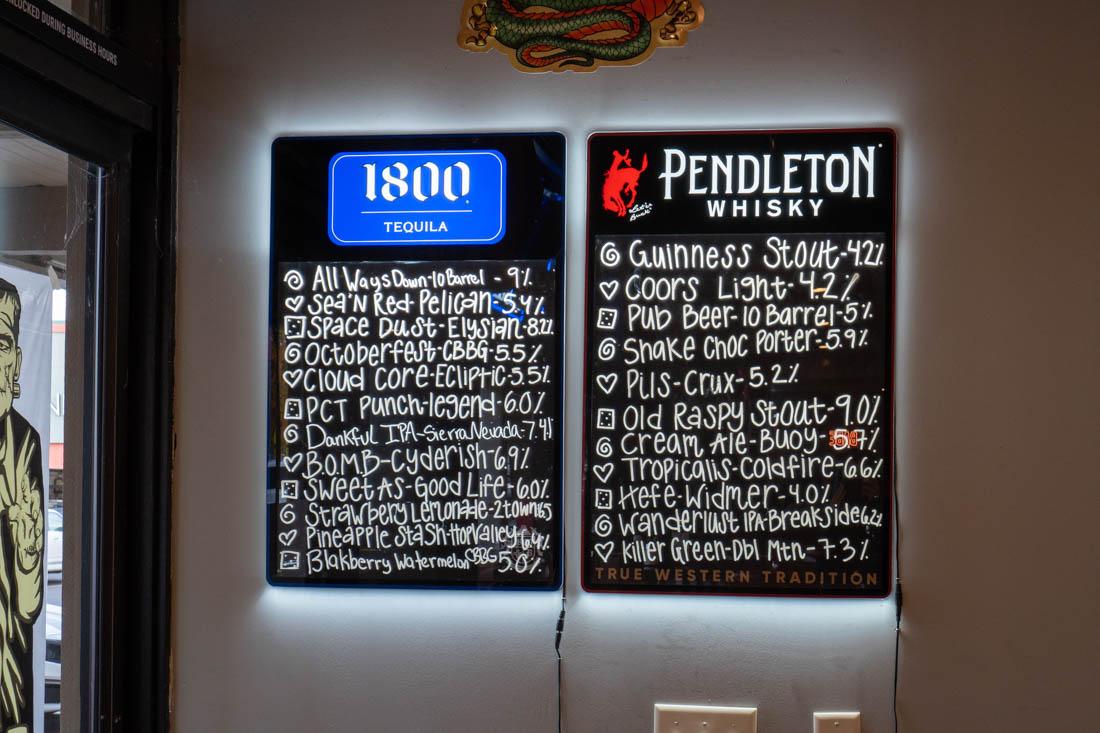 UNLOCKED DURING BUSINESS HOURS
1800
TEQUILA
All Ways Down-10 Barrel - 9%
Sea'N Red-Pelican-5.4%
Space Dust-Elysian-8.2%
Octoberfest-CBBG-5.5%
Cloud Core-Ecliptic-5.5%
PCT Punch-legend-6.0%
Dankful IPA-Sierra Nevada-7.4%
B.O.M.B-Cyderish-6.9%
Sweet As-Good Life-6.0%
Strawbery Lemonade-2towns
Pineapple Stash-Hop Valley 6.4%
Blakberry Watermelon CBBG 5.0%
PENDLETON
WHISKY
Let'er Buck
Guinness Stout-4.2%
Coors Light-4.2%
Pub Beer-10 Barrel-5%
Shake Choc Porter-5.9%
Pils-Crux-5.2%
Old Raspy Stout-9.0%
Cream Ale-Buoy-5.7%
Tropicalis-Coldfire-6.6%
Hefe-Widmer-4.0%
Wanderlust IPA-Breakside 6.2%
Killer Green-Dbl Mtn-7.3%
TRUE WESTERN TRADITION